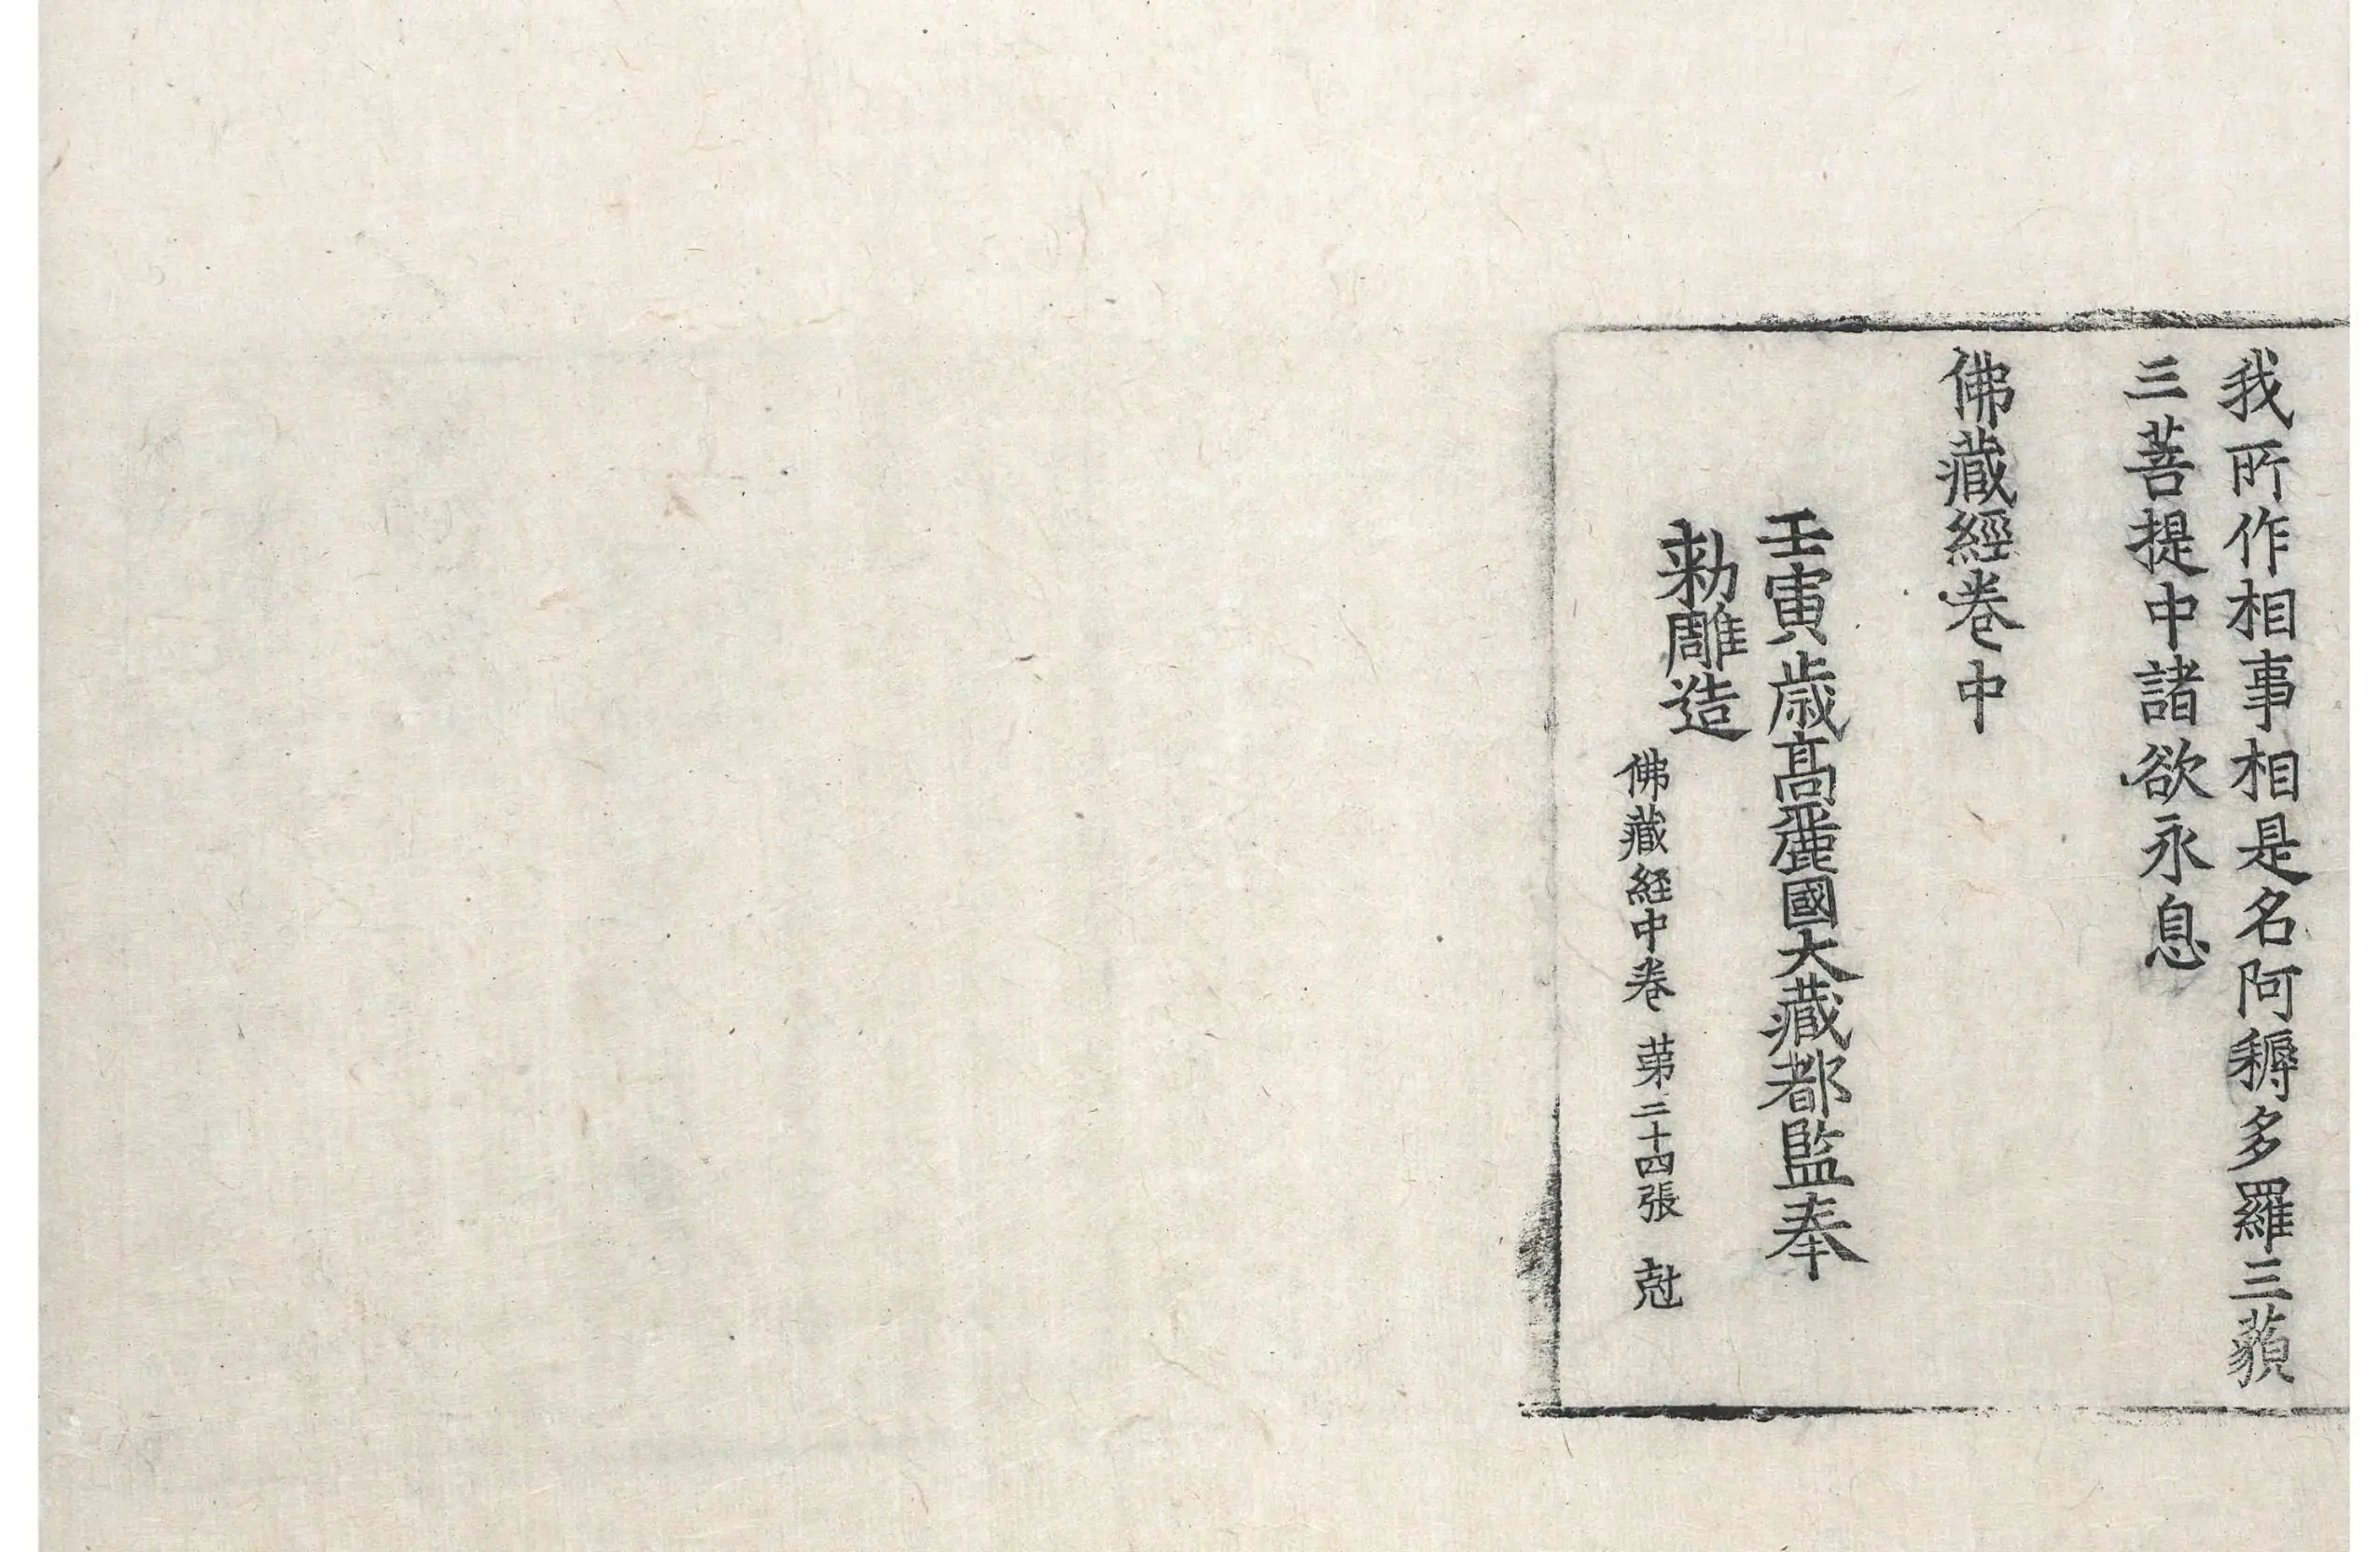 我所作相事相是名阿耨多羅三藐
三菩提中諸欲永息
佛藏經卷中
壬寅歲高麗國大藏都監奉
勅雕造
佛藏経中卷 第二十四張 尅